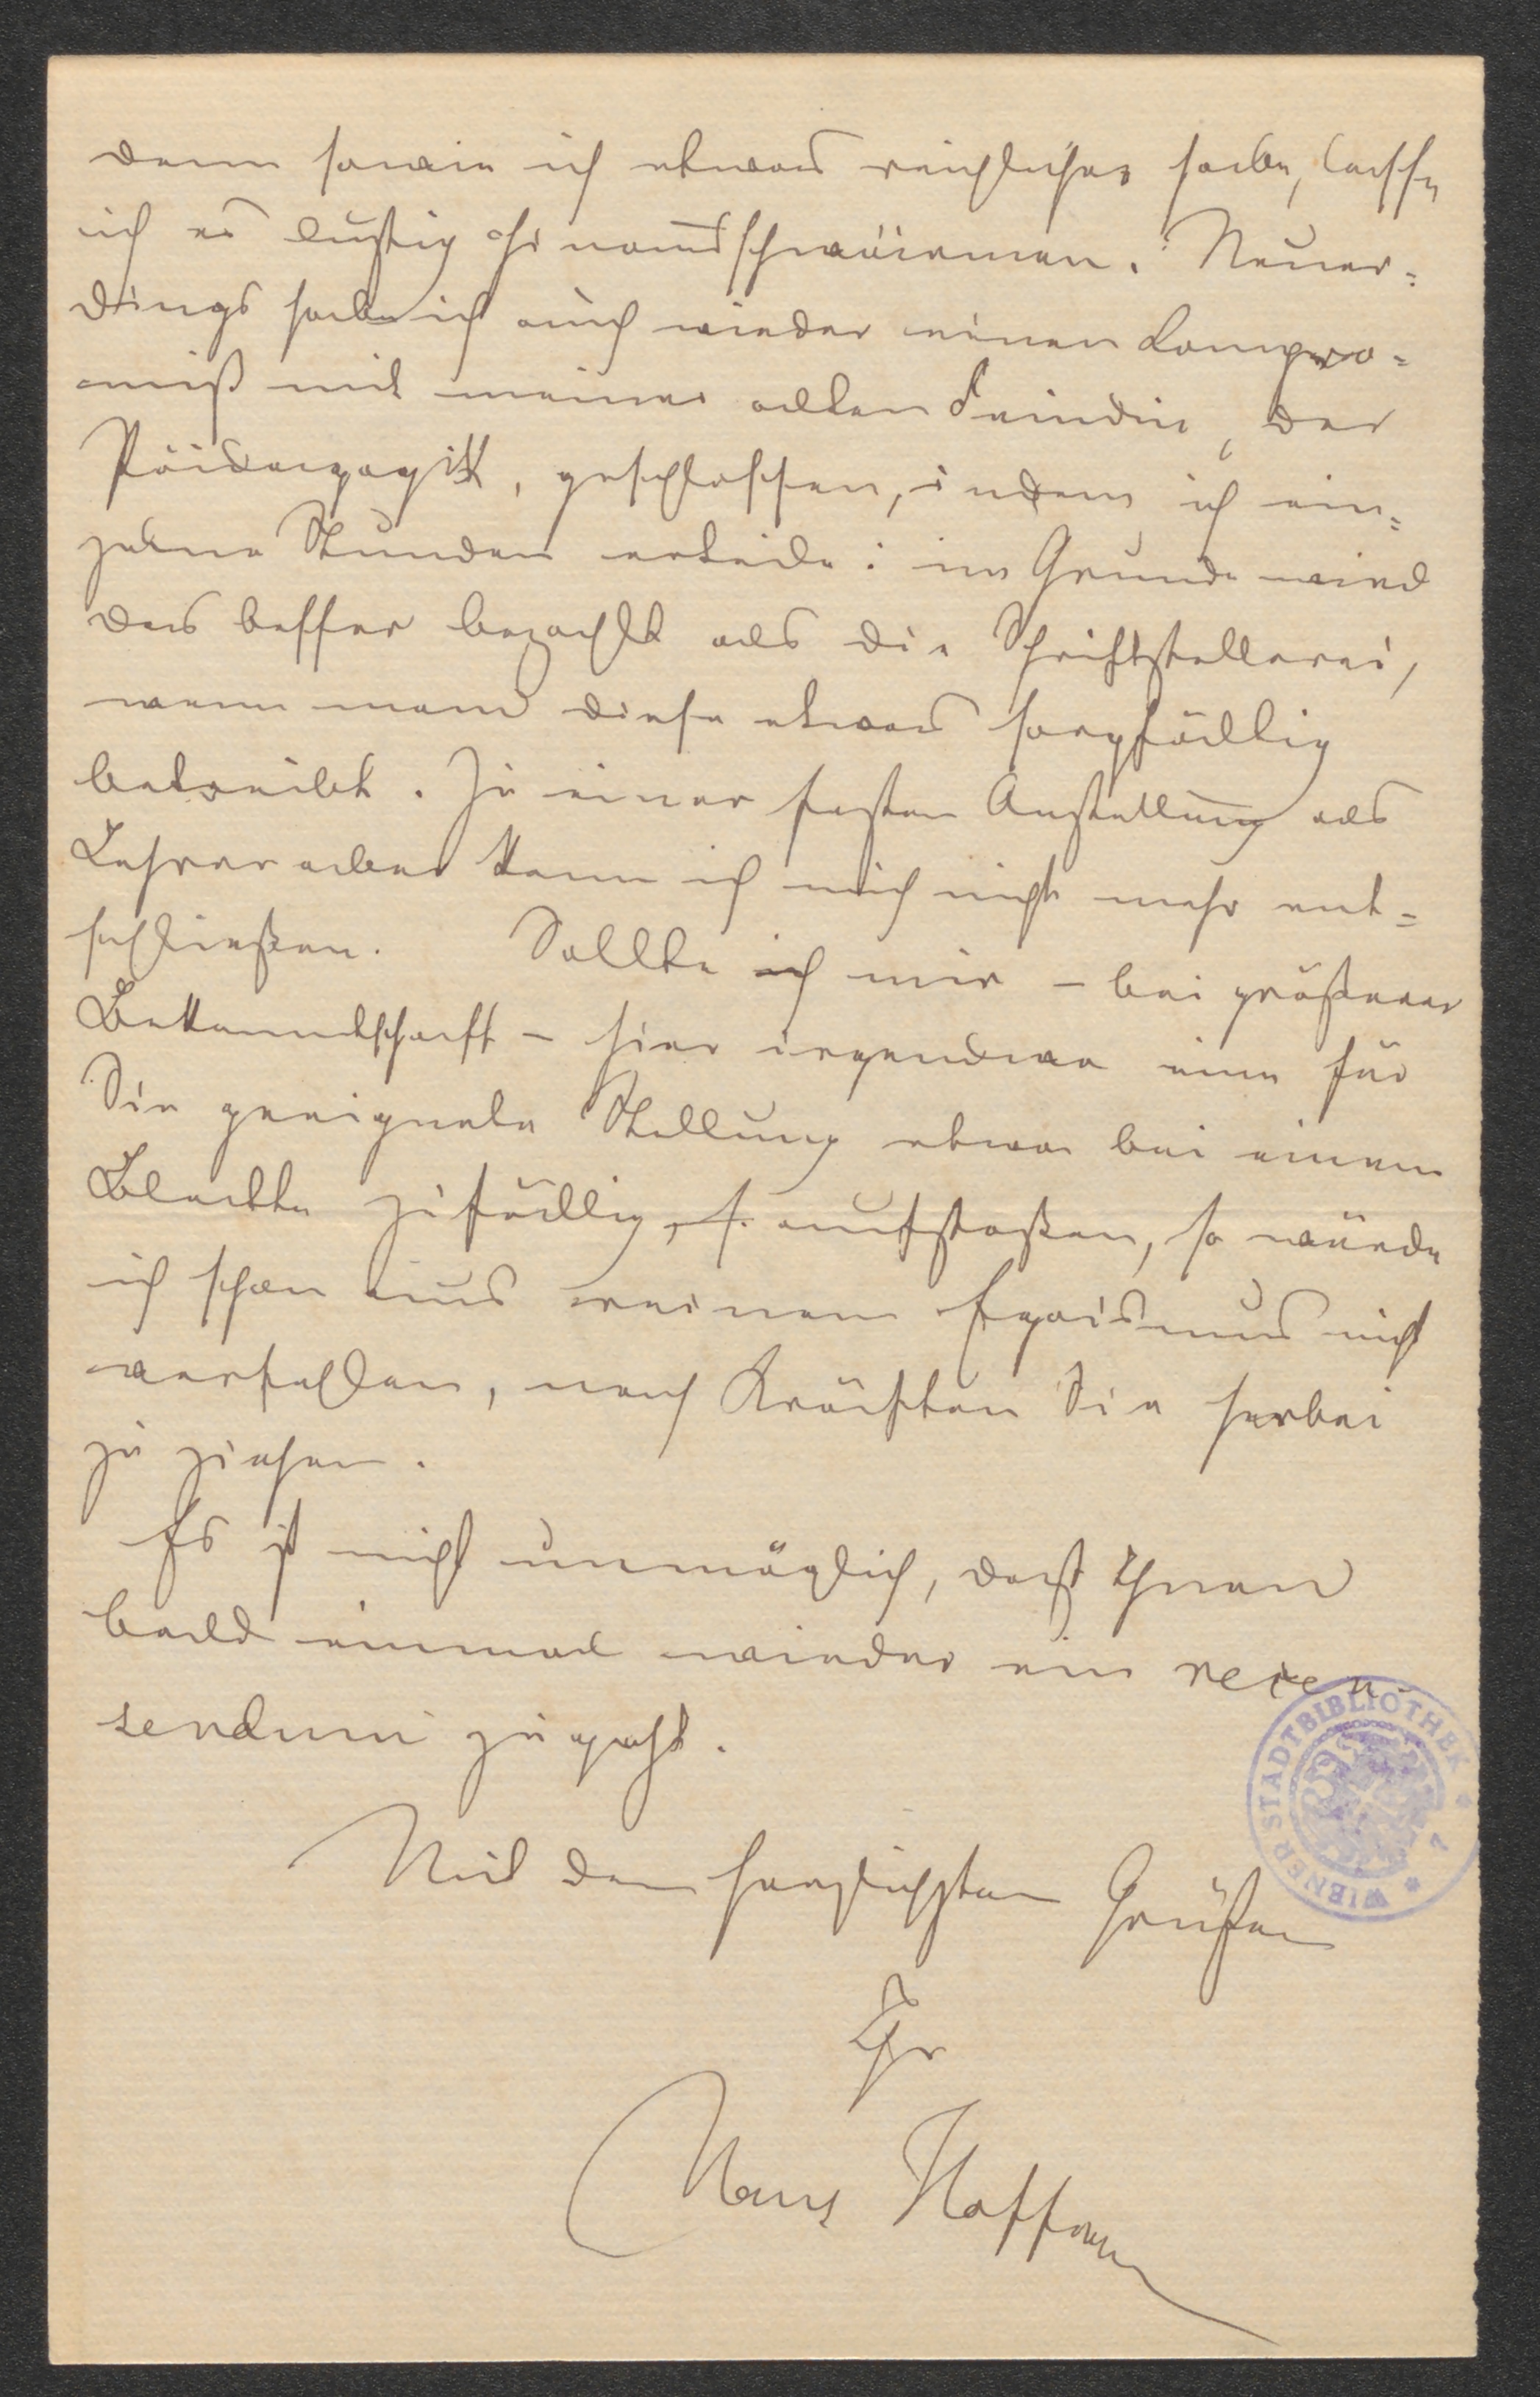 denn sowie ich etwas reichlicher habe, lasse
ich es lustig hinausschwärmen. Neuer-
dings habe ich auch wieder einen Compro-
miß mit meiner alten Feindin, der
Pädagogik, geschlossen, indem ich ein-
zelne Stunden erteile: im Grunde wird
das besser bezahlt als die Schriftstellerei,
wenn man diese etwas sorgfältig
betreibt. Zu einer festen Anstellung als
Lehrer aber kann ich mich nicht mehr ent-
schließen. Sollte ich mir - bei größerer
Bekanntschaft - hier irgendwo eine für
Sie geeignete Stellung etwa bei einem
Blatte zufällig aufstoßen, so würde
ich schon aus reinem Egoismus nicht
verfehlen, nach Kräften Sie herbei
zu ziehen.
Es ist nicht unmöglich, daß Ihnen
bald einmal wieder ein recen-
sendum zugeht.
Mit den herzlichsten Grüßen
Ihr
Hans Hoffmann
WIENER STADTBIBLIOTHEK